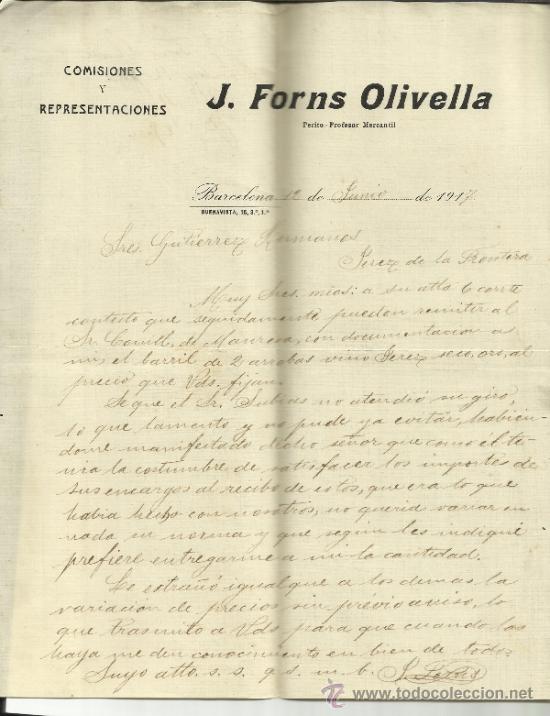 COMISIONES
Y
REPRESENTACIONES
J. Forns Olivella
Perito-Profesor Mercantil
Barcelona 12 de Junio de 1917
BUENAVISTA, 16, 3.º, 1.ª
Sres. Gutierrez Hermanos
Jerez de la Frontera
Muy Sres. mios: a su atta 6 corrte
contesto que seguidamente pueden remitir al
Sr. Comill. de Manresa, con documentacion a
mi, el barril de 2 arrobas vino Jerez seco, oro, al
precio que Vds. fijan.
Se que el Sr. no atendió su giro,
lo que lamento y no pude ya evitar, habien-
dome manifestado dicho señor que como el te-
nia la costumbre de satisfacer los importes de
sus encargos al recibo de estos, que era lo que
habia hecho con nosotros, no queria variar en
nada su norma y que según les indiqué
prefiere entregarme a mi la cantidad.
Le extrañó igual que a los demas la
variacion de precios sin previo aviso, lo
que trasmito a Vds para que cuando las
haya me den conocimiento en bien de todos
Suyo atto. s. s. q. s. m. b. J. Forns
© todocoleccion
www.todocoleccion.net